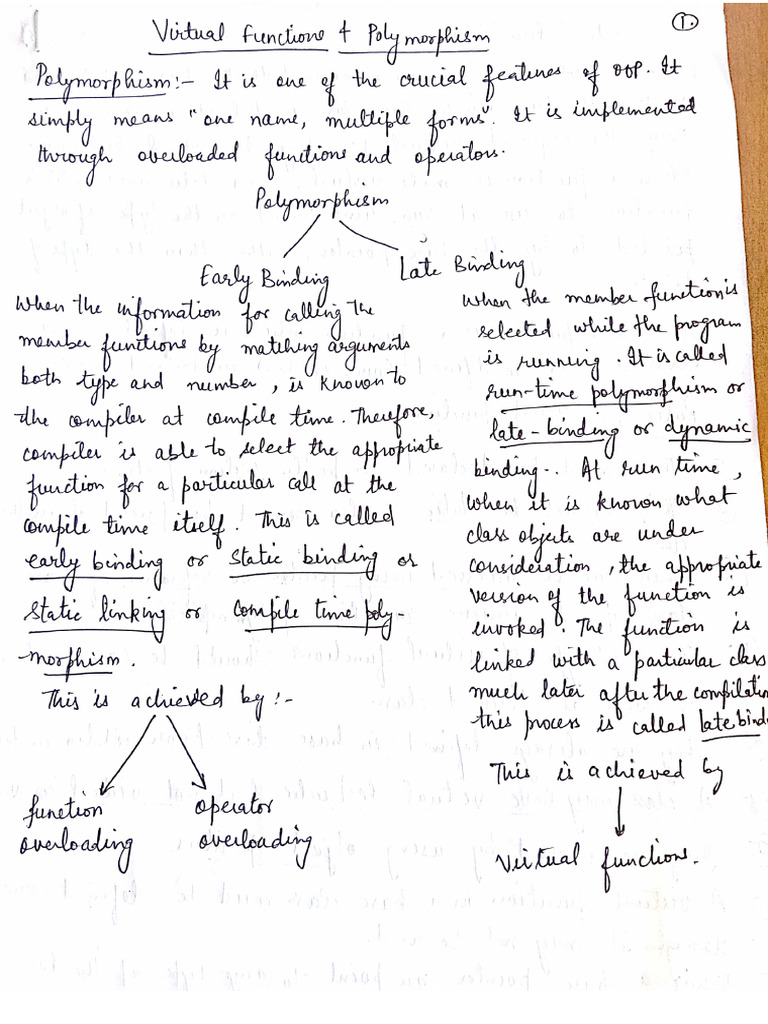 1.
Virtual Functions & Polymorphism
Polymorphism:- It is one of the crucial features of OOP. It
simply means "one name, multiple forms". It is implemented
through overloaded functions and operators.
Polymorphism
Early Binding
When the information for calling the
member functions by matching arguments
both type and number, is known to
the compiler at compile time. Therefore,
compiler is able to select the appropriate
function for a particular call at the
compile time itself. This is called
early binding or static binding or
static linking or compile time poly-
-morphism.
This is achieved by:-
function
overloading
operator
overloading
Late Binding
When the member function is
selected while the program
is running. It is called
run-time polymorphism or
late-binding or dynamic
binding.. At run time,
when it is known what
class objects are under
consideration, the appropriate
version of the function is
invoked. The function is
linked with a particular class
much later after the compilation
this process is called late bind
This is achieved by
Virtual functions.